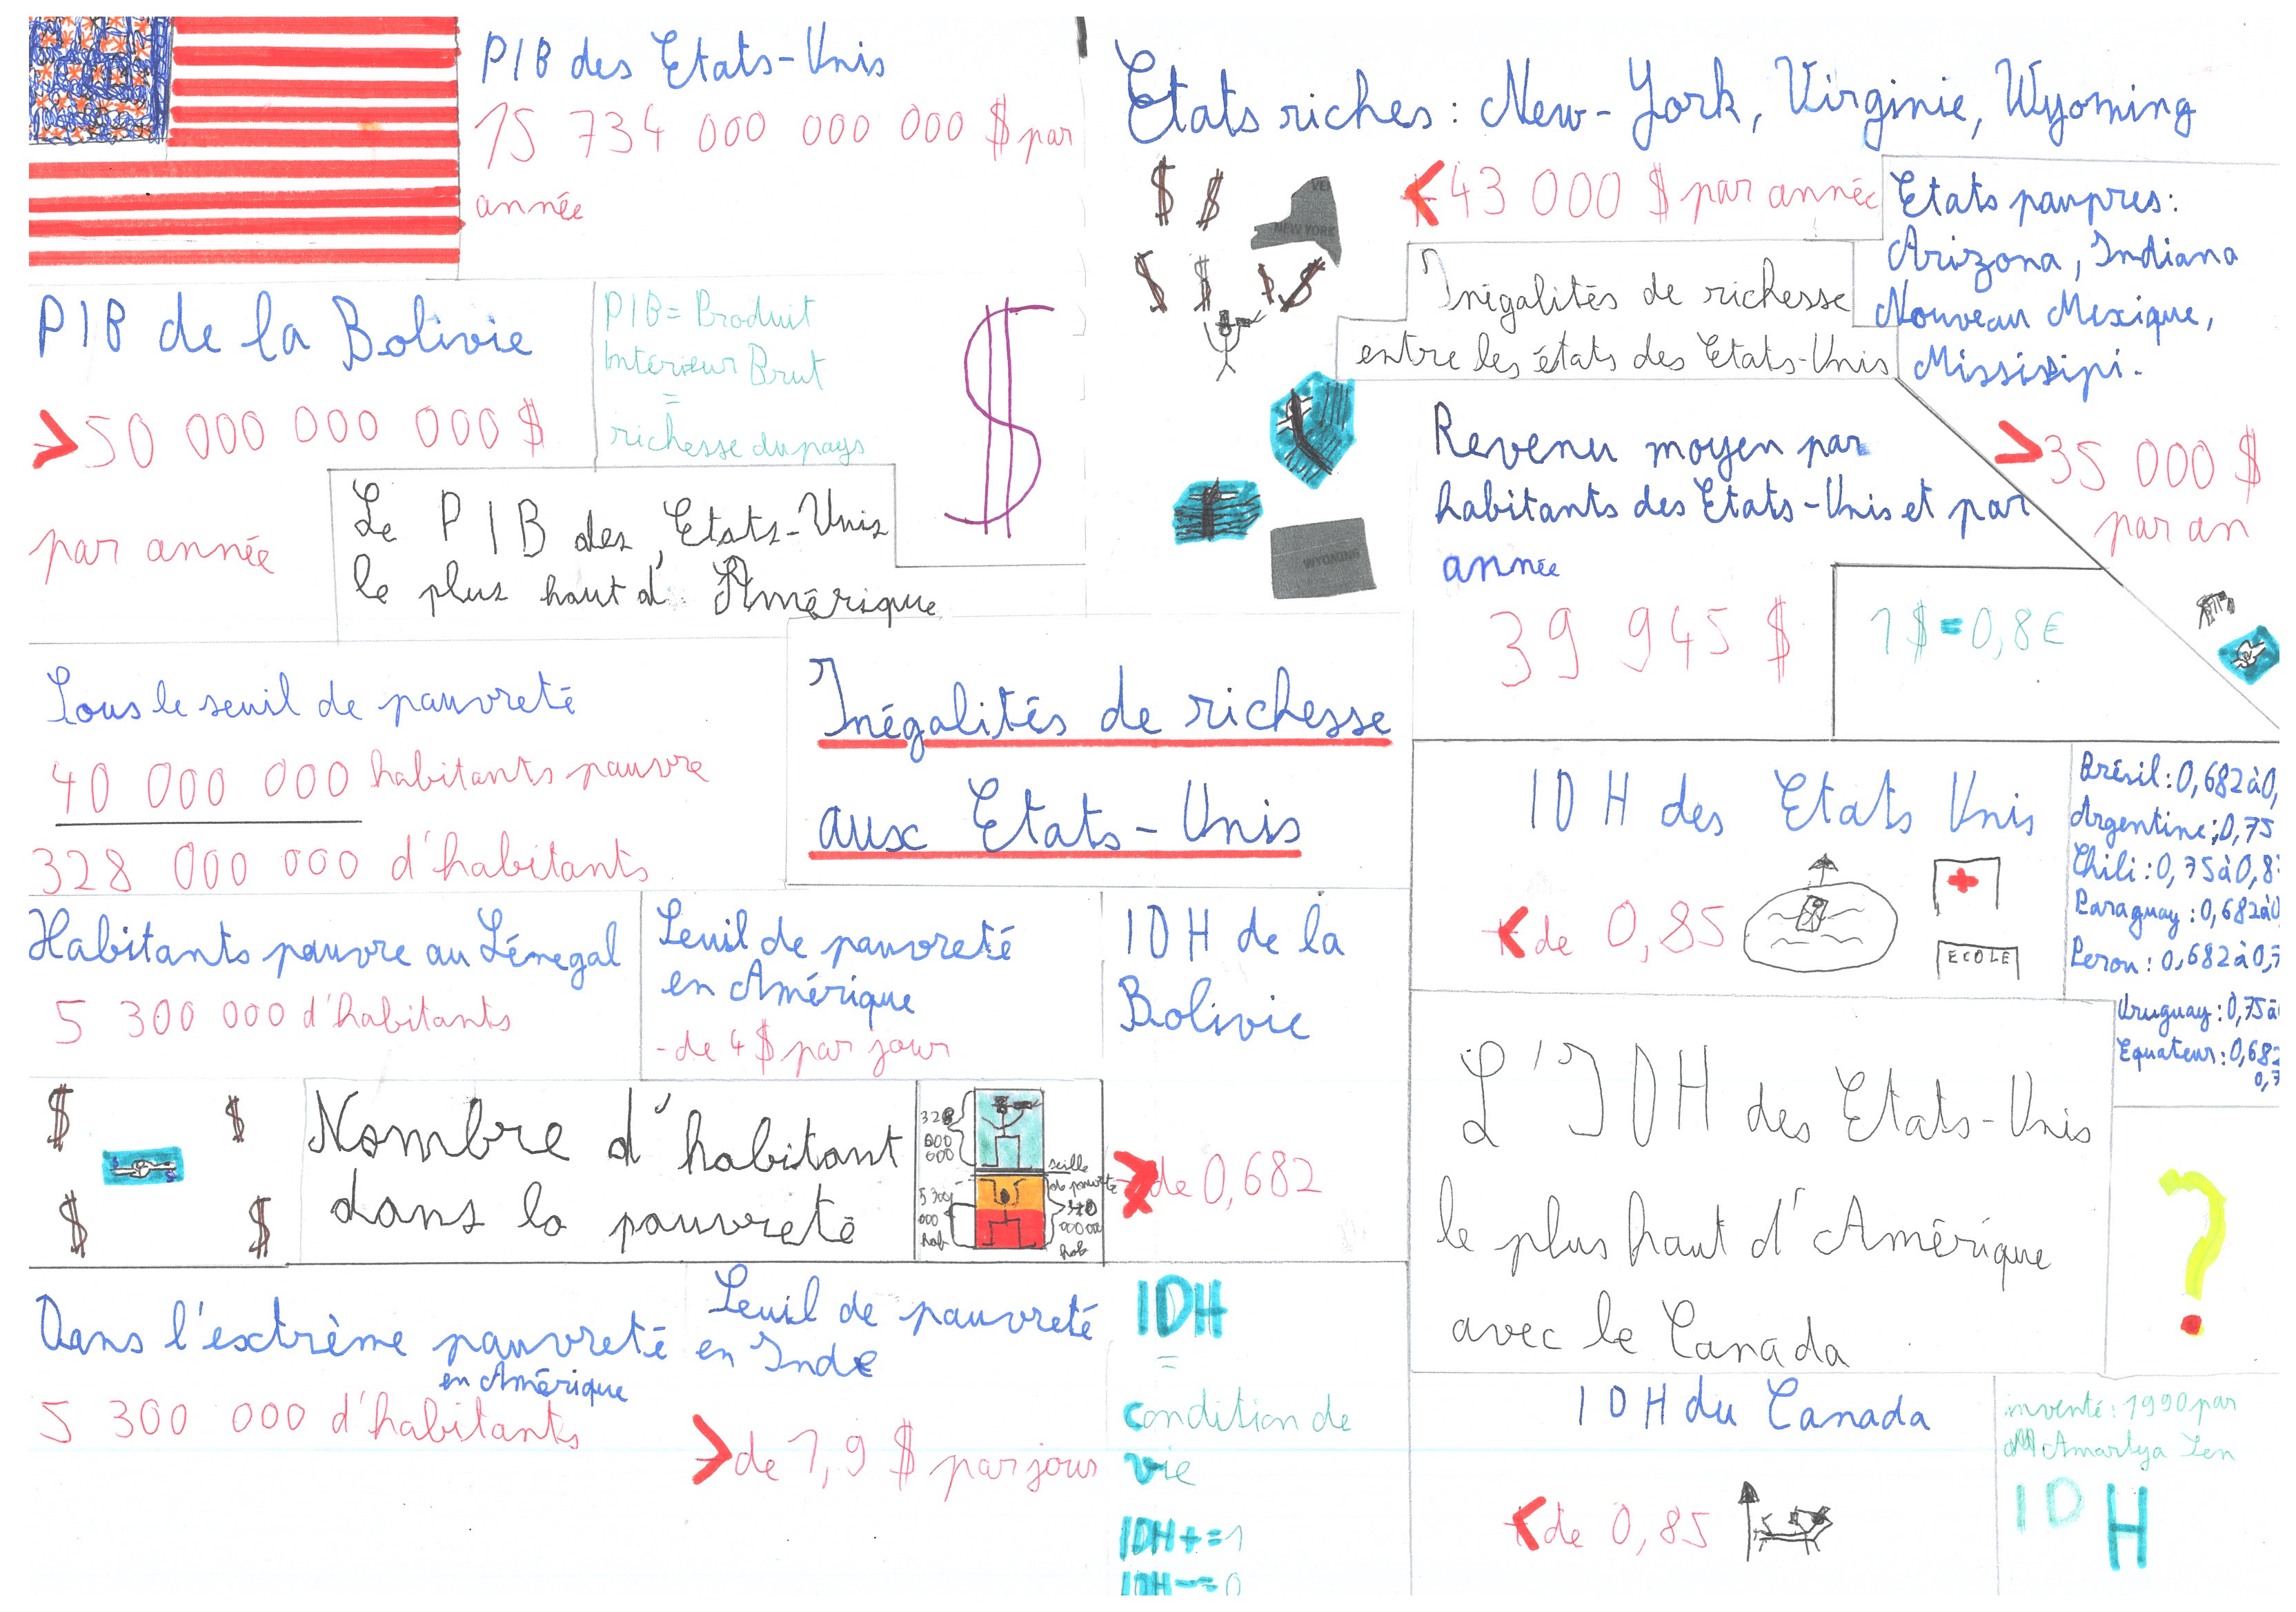 PIB des Etats-Unis
15 734 000 000 000 $ par
année
PIB de la Bolivie
>50 000 000 000 $
par année
PIB = Produit
Intérieur Brut
=
richesse du pays
$
Le PIB des Etats-Unis
le plus haut d'Amérique
Etats riches : New-York, Virginie, Wyoming
<43 000 $ par année
$ $
NEW YORK
$ $ $ $
WYOMING
Inégalités de richesse
entre les états des Etats-Unis
Etats paupres :
Arizona, Indiana
Nouveau Mexique,
Missisipi.
>35 000 $
par an
Revenu moyen par
habitants des Etats-Unis et par
année
39 945 $
1 $ = 0,8 €
Sous le seuil de pauvreté
40 000 000 habitants pauvre
328 000 000 d'habitants
Inégalités de richesse
aux Etats-Unis
Habitants pauvre au Sénegal
5 300 000 d'habitants
Seuil de pauvreté
en Amérique
-de 4 $ par jour
IDH de la
Bolivie
>de 0,682
$ $
$ $
Nombre d'habitant
dans la pauvreté
328
000
000
seille
de pauvreté
5 300
000
hab
hab
Dans l'extrème pauvreté
en Amérique
5 300 000 d'habitants
Seuil de pauvreté
en Inde
>de 1,9 $ par jour
IDH
=
condition de
vie
IDH+=1
IDH-=0
IDH des Etats Unis
<de 0,85
ECOLE
Brésil : 0,682 à 0,
Argentine : 0,75
Chili : 0,75 à 0,8
Paraguay : 0,682 à 0
Perou : 0,682 à 0,7
Uruguay : 0,75 à
Equateur : 0,682
0,7
L'IDH des Etats-Unis
le plus haut d'Amérique
avec le Canada
?
IDH du Canada
<de 0,85
inventé : 1990 par
Amartya Sen
IDH